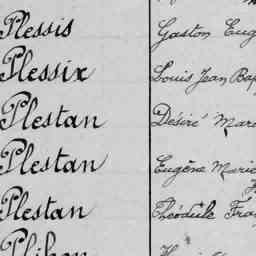 Plessis Gaston Eug
Plessix Louis Jean Bap
Plestan Désiré Mar
Plestan Eugène Marie
Plestan Théodule Fra